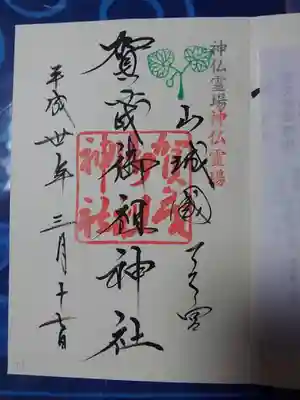 神仏霊場神仏霊場
山城國一之宮
賀茂御祖神社
賀茂御祖神社
平成丗年三月十